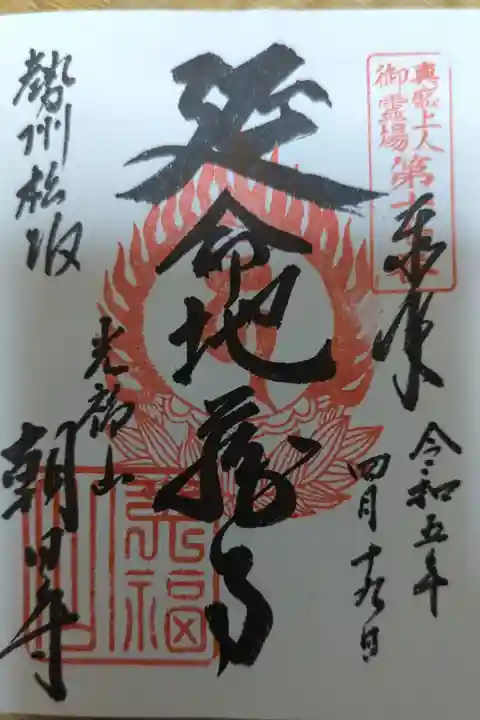 真盛上人
御霊場第十
奉拝
令和五年
四月十九日
延命地蔵尊
勢州松坂
光福山
朝日寺
光福